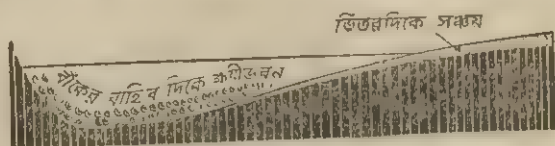 ভিতরদিকে সঞ্চয়
বাঁকের বাহির দিকে ক্ষয়ীভবন